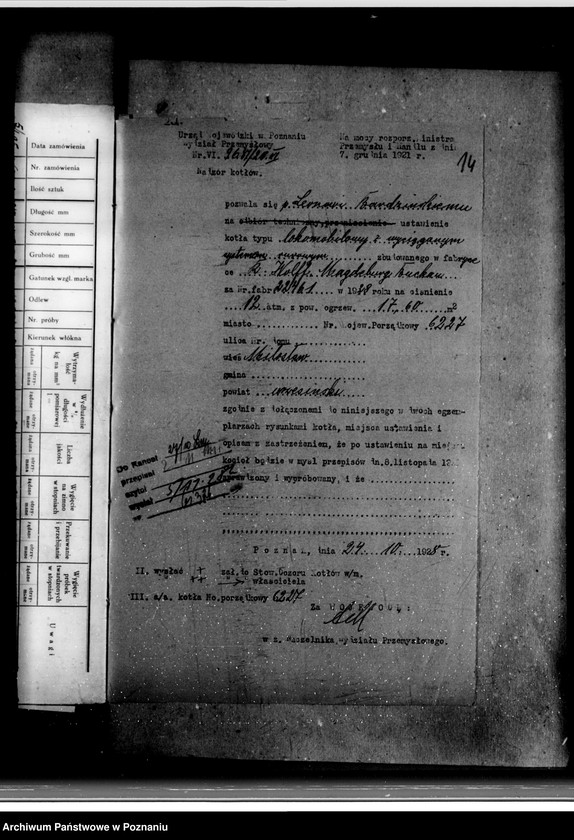 Urząd Wojewódzki w Poznaniu
Wydział Przemysłowy
Nr.VI.
Nadzór kotłów.
Na mocy rozporz. Ministra
Przemysłu i Handlu z dnia
7. grudnia 1921 r.
14
pozwala się p. Leonowi
na odbiór techniczny, ustawienie
kotła typu lokomobilowy z wyciąganym
systemem rurowym zbudowanego w fabryce
ce R. Wolff. Magdeburg Buckau
za Nr.fabr. w 19 8 roku na ciśnienie
12 atm. z pow. ogrzew. 17.60 m2
miasto Nr. Wojew.Porządkowy 6227
ulica Nr. domu
wieś Miłosław
gmina
powiat wrzesiński
zgodnie z dołączonemi do niniejszego w dwóch egzem-
plarzach rysunkami kotła, miejsca ustawienia i
opisem z zastrzeżeniem, że po ustawieniu na miejscu
kocioł będzie w myśl przepisów dn.8.listopada 17
sprawdzony i wypróbowany, i że
Do Kancel
przepisał
czytał
wysłał
Poznań, dnia 24 10. 1928 r.
II. wysłać + zał. do Stow.Dozoru Kotłów w/m.
++ właściciela
III. a/a. kotła No.porządkowy 6227
Za WOJEWODĘ:
w z. Naczelnika Wydziału Przemysłowego.
Data zamówienia
Nr. zamówienia
Ilość sztuk
Długość mm
Szerokość mm
Grubość mm
Gatunek wzgl. marka
Odlew
Nr. próby
Kierunek włókna
Wytrzyma-
łość
kg na mm²
Wydłużenie
w %
długości
pomiarowej
Liczba
jakości
Wygięcie
na zimno
w stopniach
Przekuwanie
i przebijanie
Wygięcie
próbek
twardzonych
w stopniach
żądane
otrzy-
mane
Uwagi
Archiwum Państwowe w Poznaniu